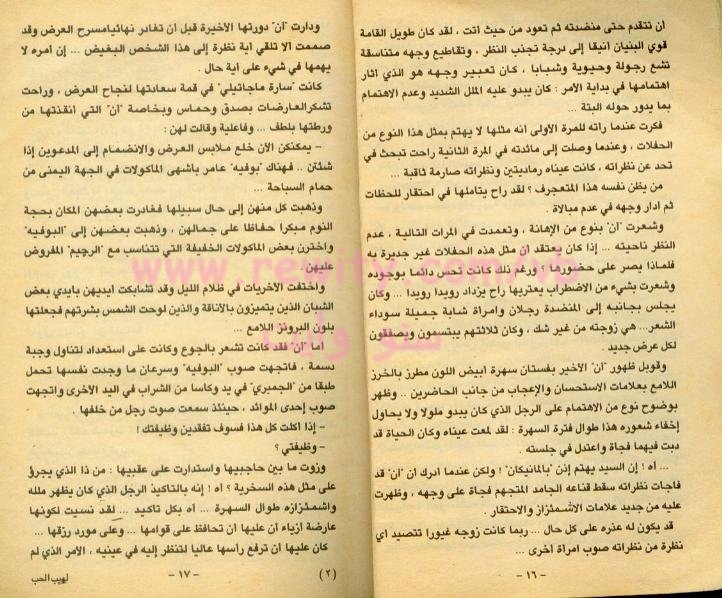 ان تتقدم حتى منضدته ثم تعود من حيث أتت ، لقد كان طويل القامة
قوي البنيان أنيقا إلى درجة تجذب النظر ، وتقاطيع وجهه متناسقة
تشع رجولة وحيوية وشبابا ، كان تعبير وجهه هو الذي أثار
اهتمامها في بداية الأمر : كان يبدو عليه الملل الشديد وعدم الاهتمام
بما يدور حوله البتة ...
فكرت عندما رأته للمرة الأولى أنه مثلها لا يهتم بمثل هذا النوع من
الحفلات ، وعندما وصلت إلى مائدته في المرة الثانية راحت تبحث في
تحد عن نظراته ، كانت عيناه رماديتين ونظراته صارمة ثاقبة ...
من يظن نفسه هذا المتعجرف ؟ لقد راح يتأملها في احتقار للحظات
ثم أدار وجهه في عدم مبالاة .
وشعرت "آن" بنوع من الإهانة ، وتعمدت في المرات التالية ، عدم
النظر ناحيته ... إذا كان يعتقد أن مثل هذه الحفلات غير جديرة به
فلماذا يصر على حضورها ؟ ورغم ذلك كانت تحس دائما بوجوده
وشعرت بشيء من الاضطراب يعتريها راح يزداد رويدا رويدا ... وكان
يجلس بجانبه إلى المنضدة رجلان وامرأة شابة جميلة سوداء
الشعر... هي زوجته من غير شك ، وكان ثلاثتهم يبتسمون ويصفقون
لكل عرض جديد .
وقوبل ظهور "آن" الأخير بفستان سهرة أبيض اللون مطرز بالخرز
اللامع بعلامات الاستحسان والإعجاب من جانب الحاضرين .. وظهر
بوضوح نوع من الاهتمام على الرجل الذي كان يبدو ملولا ولا يحاول
إخفاء شعوره هذا طوال فترة السهرة : لقد لمعت عيناه وكأن الحياة قد
دبت فيهما فجأة واعتدل في جلسته .
... آه ! إن السيد يهتم إذن "بالمانيكان" ! ولكن عندما أدرك أن "آن" قد
فاجأت نظراته سقط قناعه الجامد المتجهم فجأة على وجهه ، وظهرت
عليه من جديد علامات الاشمئزاز والاحتقار .
قد يكون له عذره على كل حال ... ربما كانت زوجه غيورا تتصيد أي
نظرة من نظراته صوب امرأة أخرى ...
- ١٦ -
ودارت "آن" دورتها الأخيرة قبل أن تغادر نهائيا مسرح العرض وقد
صممت ألا تلقي أية نظرة إلى هذا الشخص البغيض ... إن أمره لا
يهمها في شيء على أية حال .
كانت "سارة ماجاتيلي" في قمة سعادتها لنجاح العرض ، وراحت
تشكر العارضات بصدق وحماس وبخاصة "آن" التي أنقذتها من
ورطتها بلطف ... وفاعلية وقالت لهن :
- يمكنكن الآن خلع ملابس العرض والانضمام إلى المدعوين إذا
شئتن .. فهناك "بوفيه" عامر بأشهى المأكولات في الجهة اليمنى من
حمام السباحة ...
وذهبت كل منهن إلى حال سبيلها فغادرت بعضهن المكان بحجة
النوم مبكرا حفاظا على جمالهن ، وذهبت بعضهن إلى "البوفيه"
واخترن بعض المأكولات الخفيفة التي تتناسب مع "الرجيم" المفروض
عليهن .
واختفت الأخريات في ظلام الليل وقد تشابكت أيديهن بأيدي بعض
الشبان الذين يتميزون بالأناقة والذين لوحت الشمس بشرتهم فجعلتها
بلون البرونز اللامع ...
أما "آن" فقد كانت تشعر بالجوع وكانت على استعداد لتناول وجبة
دسمة ، فاتجهت صوب "البوفيه" وسرعان ما وجدت نفسها تحمل
طبقا من "الجمبري" في يد وكأسا من الشراب في اليد الأخرى واتجهت
صوب إحدى الموائد ، حينئذ سمعت صوت رجل من خلفها .
- إذا أكلت كل هذا فسوف تفقدين وظيفتك !
- وظيفتي ؟
وزوت ما بين حاجبيها واستدارت على عقبيها : من ذا الذي يجرؤ
على مثل هذه السخرية ؟ آه ! إنه بالتأكيد الرجل الذي كان يظهر ملله
واشمئزازه طوال السهرة ... آه بكل تأكيد ... لقد نسيت لكونها
عارضة أزياء أن عليها أن تحافظ على قوامها ... وعلى مورد رزقها ...
كان عليها أن ترفع رأسها عاليا لتنظر إليه في عينيه ، الأمر الذي لم
لهيب الحب - ١٧ - (٢)